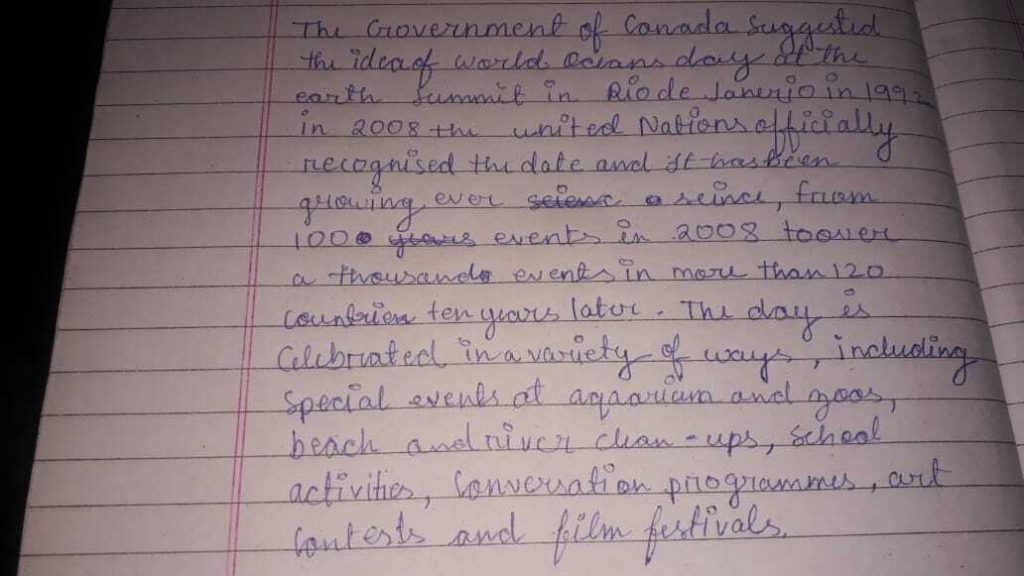 The Government of Canada suggested
the idea of world Oceans day at the
earth summit in Rio de Janerio in 1992
in 2008 the united Nations officially
recognised the date and it has been
growing ever seince, from
100 events in 2008 to over
a thousands events in more than 120
countries ten years later. The day is
Celebrated in a variety of ways, including
special events at aqaarium and zoos,
beach and river clean-ups, school
activities, Conversation programmes, art
contests and film festivals.